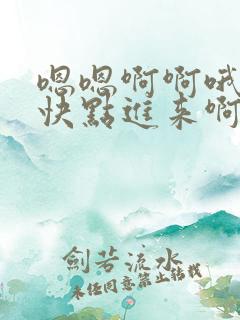 嗯嗯啊啊哦
快點進来啊
劍若流水
未经同意禁止转载